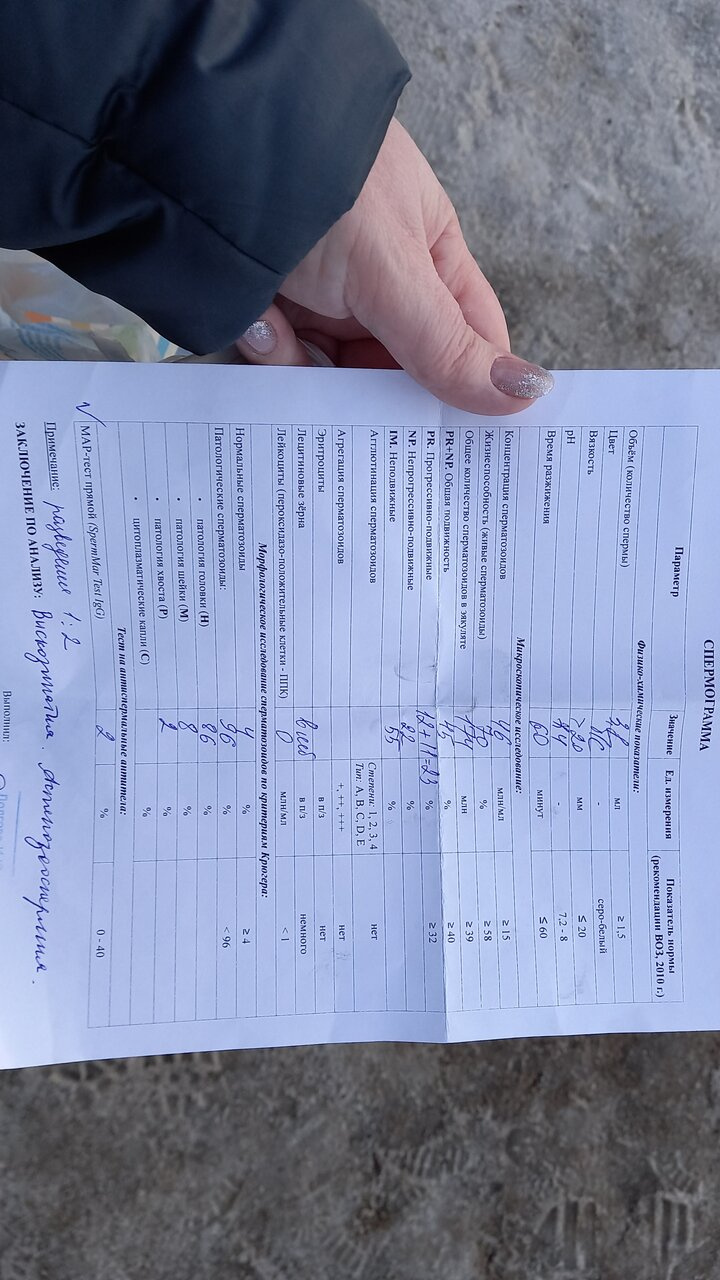 СПЕРМОГРАММА
Параметр Значение Ед. измерения Показатель нормы (рекомендации ВОЗ, 2010 г.)
Физико-химические показатели:
Объём (количество спермы) мл ≥ 1,5
Цвет - серо-белый
Вязкость >20 мм ≤ 20
pH - 7,2 - 8
Время разжижения 60 минут ≤ 60
Микроскопическое исследование:
Концентрация сперматозоидов 46 млн/мл ≥ 15
Жизнеспособность (живые сперматозоиды) 70 % ≥ 58
Общее количество сперматозоидов в эякуляте 174 млн ≥ 39
PR+NP. Общая подвижность 45 % ≥ 40
PR. Прогрессивно-подвижные 12+11=23 % ≥ 32
NP. Непрогрессивно-подвижные 22 %
IM. Неподвижные 55 %
Агглютинация сперматозоидов Степени: 1, 2, 3, 4 Тип: A, B, C, D, E нет
Агрегация сперматозоидов +, ++, +++ нет
Эритроциты в п/з нет
Лецитиновые зёрна в п/з немного
Лейкоциты (пероксидазо-положительные клетки - ППК) 0 млн/мл < 1
Морфологическое исследование сперматозоидов по критериям Крюгера:
Нормальные сперматозоиды 4 % ≥ 4
Патологические сперматозоиды: 96 % < 96
• патология головки (H) 86 %
• патология шейки (M) 8 %
• патология хвоста (P) 2 %
• цитоплазматические капли (C) %
Тест на антиспермальные антитела:
√ МАР-тест прямой (SpermMar Test IgG) 2 % 0 - 40
Примечание: разведение 1:2
ЗАКЛЮЧЕНИЕ ПО АНАЛИЗУ: Вискозипатия. Астенозооспермия.
Выполнил: